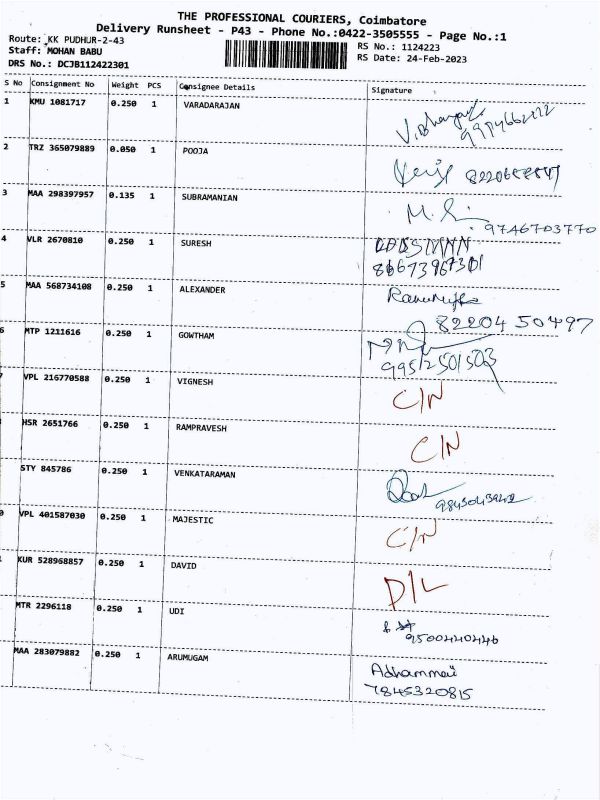 THE PROFESSIONAL COURIERS, Coimbatore
Delivery Runsheet - P43 - Phone No.:0422-3505555 - Page No.:1
Route: KK PUDHUR-2-43
RS No.: 1124223
Staff: MOHAN BABU
RS Date: 24-Feb-2023
DRS No.: DCJB112422301
S No Consignment No Weight PCS Consignee Details Signature
1 KMU 1081717 0.250 1 VARADARAJAN
2 TRZ 365079889 0.050 1 POOJA
3 MAA 298397957 0.135 1 SUBRAMANIAN
9746703770
4 VLR 2670810 0.250 1 SURESH
5 MAA 568734108 0.250 1 ALEXANDER
82204 50497
6 MTP 1211616 0.250 1 GOWTHAM
VPL 216770588 0.250 1 VIGNESH C/N
HSR 2651766 0.250 1 RAMPRAVESH C/N
STY 845786 0.250 1 VENKATARAMAN
VPL 401587030 0.250 1 MAJESTIC C/N
KUR 528968857 0.250 1 DAVID D/L
MTR 2296118 0.250 1 UDI
9500440446
MAA 283079882 0.250 1 ARUMUGAM
7845320815